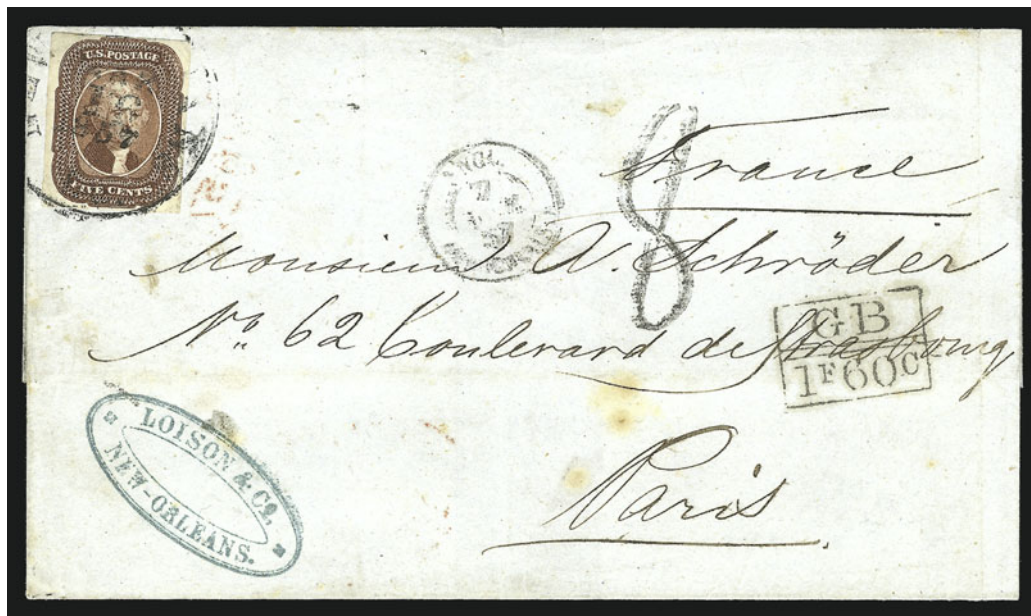 U.S. POSTAGE
FIVE CENTS
ANGL.
8
France
Monsieur A. Schröder
No. 62 Boulevard de Strasbourg
GB
1F60C
Paris
LOISON & CO.
NEW-ORLEANS.